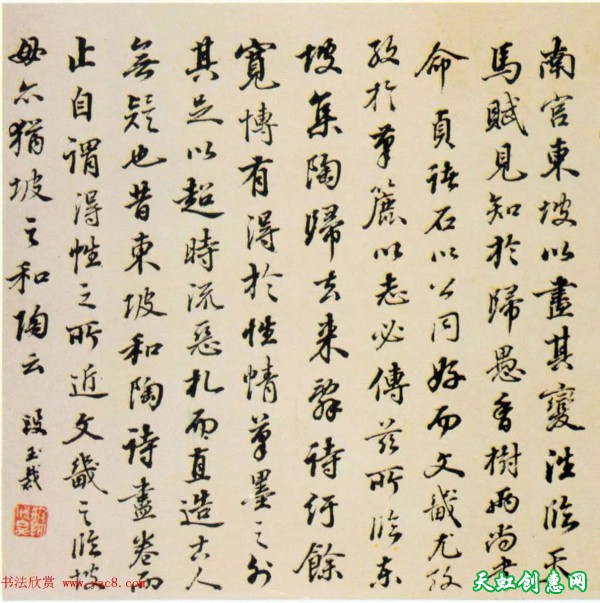 南宫東坡以盡其變往臨天
馬賦見知於歸愚香樹兩尚書
命貞珉石以公同好而文畿尤致
致於草以志必傳茲所臨東
坡集陶歸去来辭詩紆餘
寬愽有得於性情筆墨之外
其足以超時流惡札而直造古人
無疑也昔東坡和陶詩盡卷而
止自謂得性之所近文畿之臨坡
毋亦猶坡之和陶云 段玉裁
书法欣赏 www.yzc8.com
天虹创惠网